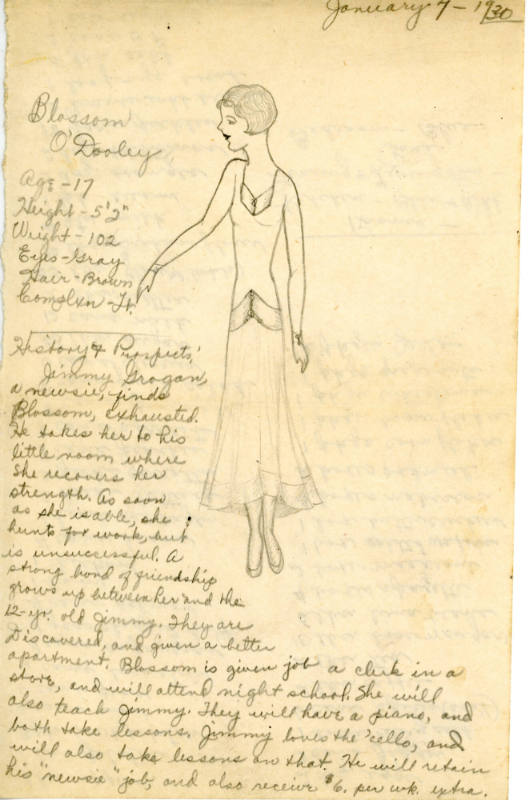 January 7 - 1930
Blossom
O'Dooley
Age - 17
Height - 5'2"
Weight - 102
Eyes - Gray
Hair - Brown
Complxn - Lt.
History & Prospects:
Jimmy Grogan,
a newsie, finds
Blossom, exhausted.
He takes her to his
little room where
she recovers her
strength. As soon
as she is able, she
hunts for work, but
is unsuccessful. A
strong bond of friendship
grows up between her and the
12-yr. old Jimmy. They are
discovered, and given a better
apartment. Blossom is given job a clerk in a
store, and will attend night school. She will
also teach Jimmy. They will have a piano, and
both take lessons. Jimmy loves the 'cello, and
will also take lessons on that. He will retain
his "newsie" job, and also receive $6. per wk. extra.